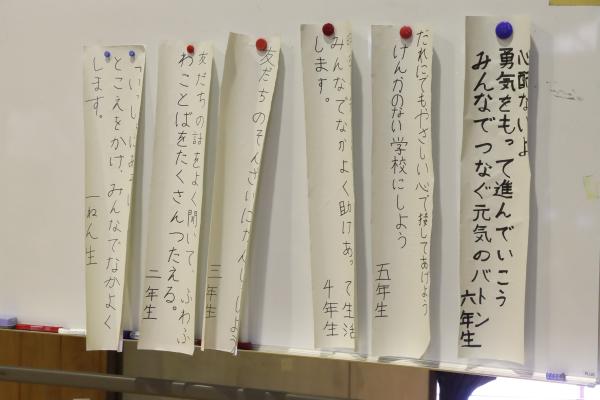 心配ないよ
勇気をもって進んでいこう
みんなでつなぐ元気のバトン
六年生
だれにでもやさしい心で接してあげよう
けんかのない学校にしよう
五年生
みんなでなかよく助けあって生活
します。
4年生
友だちのそんざいにかんしゃしよう
三年生
友だちの話をよく聞いて、ふわふ
わことばをたくさんつたえる。
二年生
とこえをかけ、みんなでなかよく
します。
一ねん生